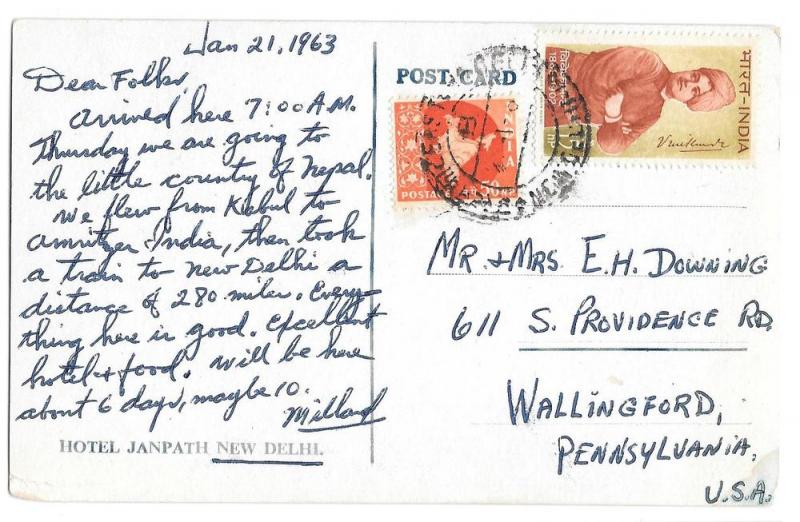 Jan 21, 1963
Dear Folks,
Arrived here 7:00 A.M.
Thursday we are going to
the little country of Nepal.
We flew from Kabul to
Amritzer India, then took
a train to New Delhi a
distance of 280 miles. Every-
thing here is good. Excellent
hotel & food. Will be here
about 6 days, maybe 10.
Millard
HOTEL JANPATH NEW DELHI.
POST CARD
INDIA
POSTAGE
भारत-INDIA
MR. & MRS. E. H. DOWNING
611 S. PROVIDENCE RD.
WALLINGFORD,
PENNSYLVANIA.
U.S.A.